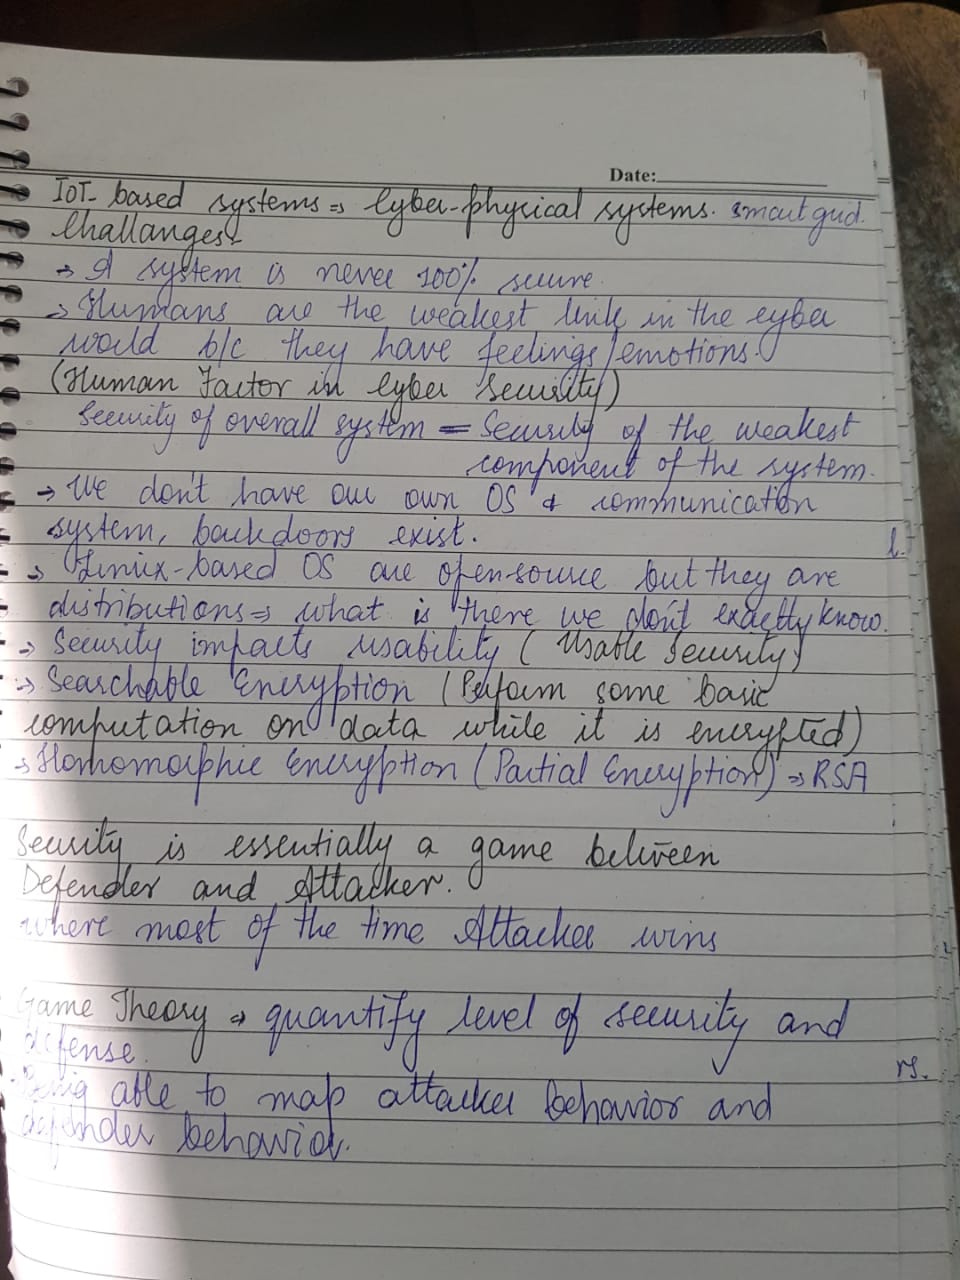 Date:
IoT-based systems ⇒ Cyber-physical systems. smart grid.
Challanges:-
→ A system is never 100% secure.
→ Humans are the weakest link in the cyber
world b/c they have feelings/emotions.
(Human Factor in Cyber Security)
Security of overall system = Security of the weakest
component of the system.
→ We don't have our own OS & communication
system, backdoors exist.
→ Linux-based OS are open-source but they are
distributions ⇒ what is there we don't exactly know.
→ Security impacts usability (Usable Security)
→ Searchable Encryption (Perform some basic
computation on data while it is encrypted)
→ Homomorphic Encryption (Partial Encryption) ⇒ RSA
Security is essentially a game between
Defender and Attacker.
where most of the time Attacker wins
Game Theory ⇒ quantify level of security and
defense.
Being able to map attacker behavior and
defender behavior.
rs.